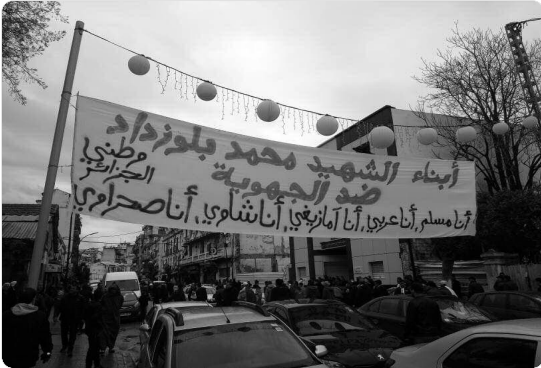 أبناء الشهيد محمد بلوزداد
ضد الجهوية
موطني
الجزائر
أنا مسلم, أنا عربي, أنا آمازيغي, أنا شاوي, أنا صحراوي